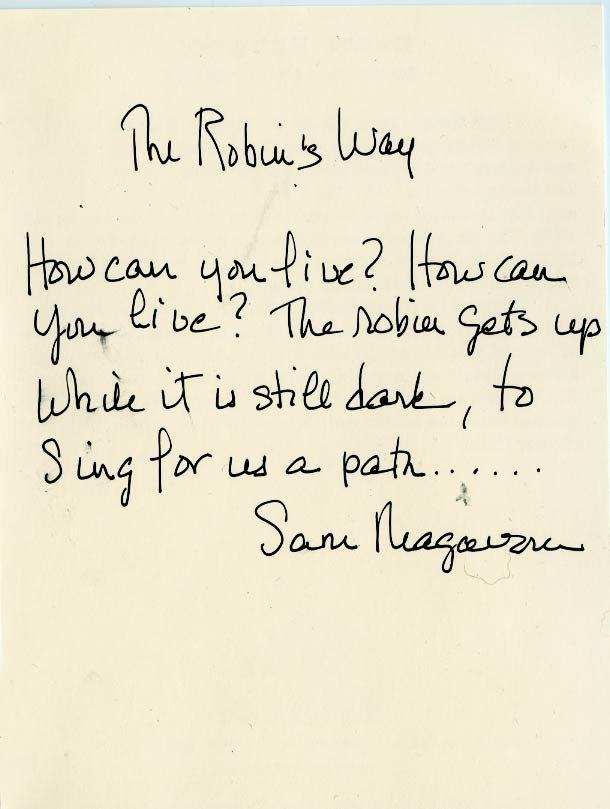 The Robin's Way
How can you live? How can
you live? The robin gets up
While it is still dark, to
Sing for us a path......
Sam Magavern